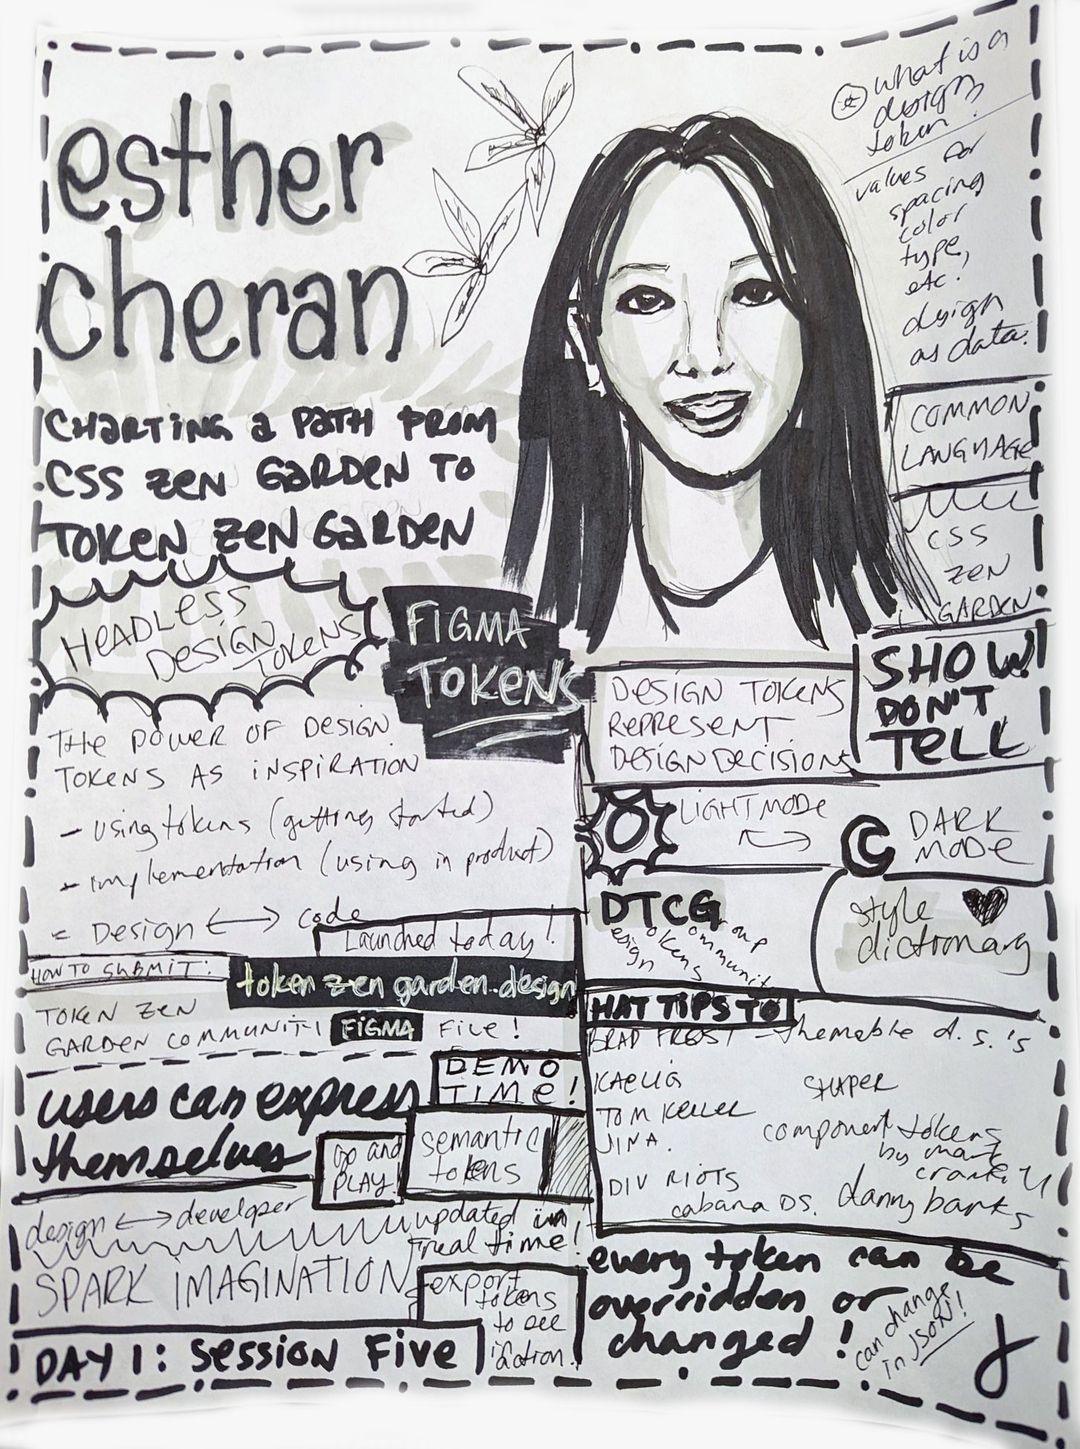 esther
cheran
CHARTING a PATH FROM
CSS ZEN GARDEN TO
TOKEN ZEN GARDEN
HEADLESS
DESIGN
TOKENS
FIGMA
TOKENS
THE POWER OF DESIGN
TOKENS AS INSPIRATION
- using tokens (getting started)
- implementation (using in product)
- Design <-> code
Launched today!
HOW TO SUBMIT:
token zen garden.design
TOKEN ZEN
GARDEN COMMUNITI FIGMA FILE!
DEMO
TIME!
users can express
themselves
GO and
PLAY!
semantic
tokens
design <-> developer
updated in
real time!
SPARK IMAGINATION
export
tokens
to see
in action.
DAY 1: SESSION FIVE
what is a
design
token?
values for
spacing
color
type,
etc.
design
as data.
COMMON
LANGUAGE
CSS
ZEN
GARDEN
SHOW
DON'T
TELL
DESIGN TOKENS
REPRESENT
DESIGN DECISIONS
LIGHT MODE
DARK
MODE
DTCG
esign
okens
ommunit
roup
style
dictionary
HAT TIPS TO
BRAD FROST - themable d.s.'s
KAELIG
SHAPER
TOM KELLEL
JINA
component tokens
by mark
DIV RIOTS
cabana DS.
danny banks
every token can be
overridden or
changed!
can change
in JSON!